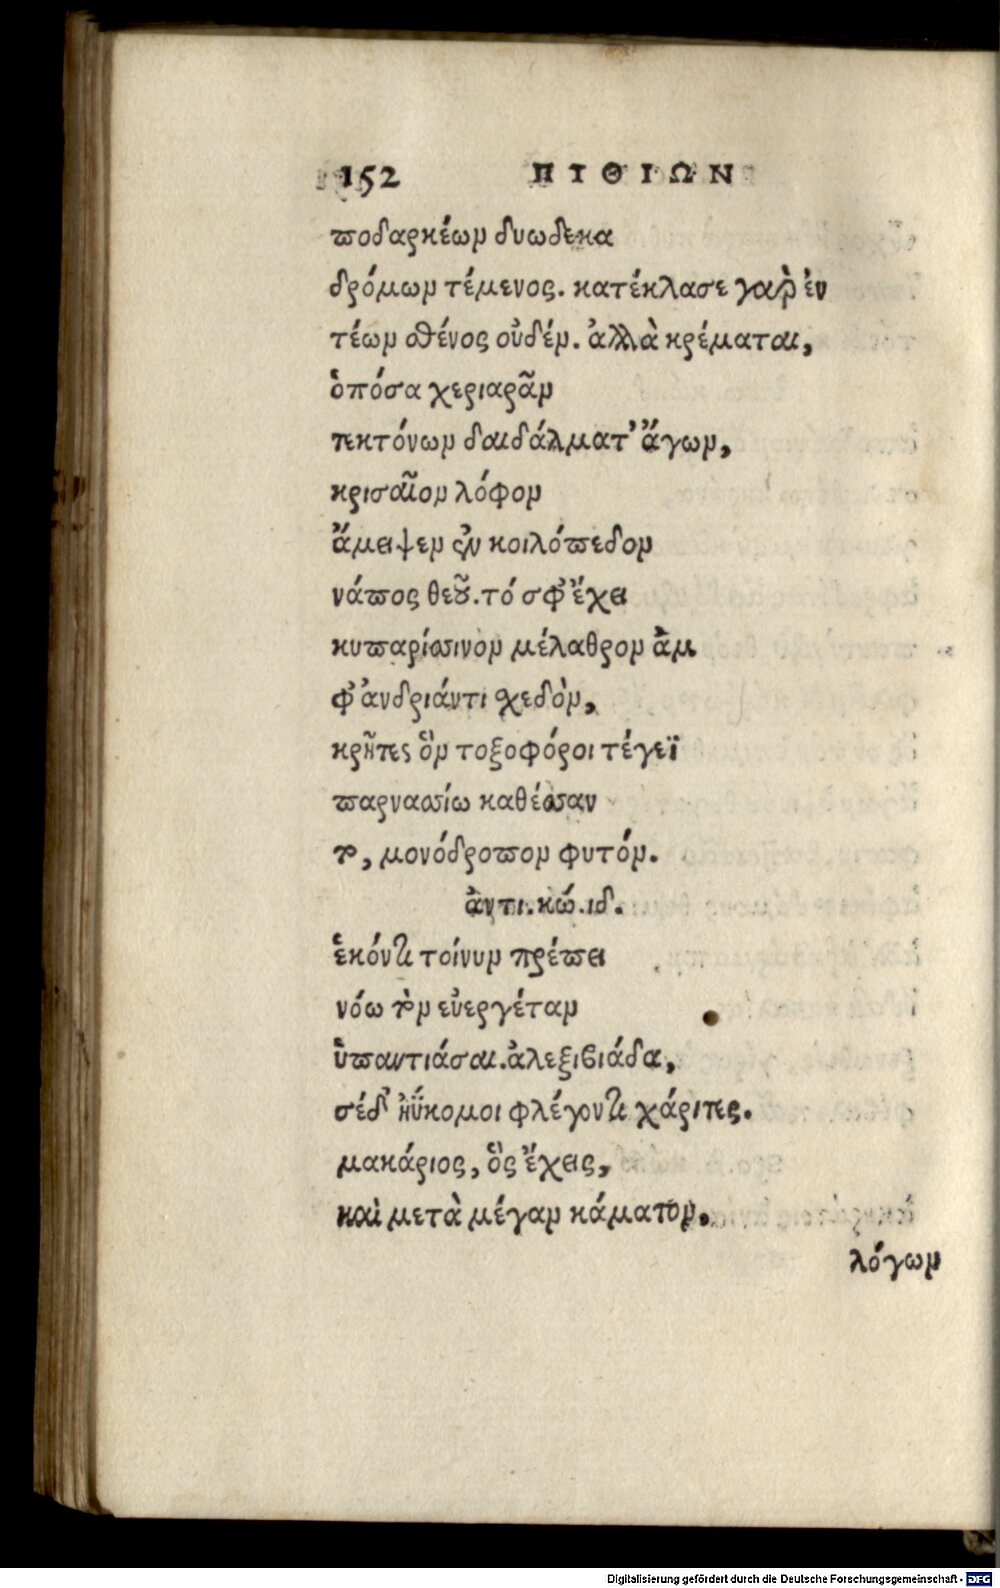 152 ΠΙΘΙΩΝ
ποδαρκέων δυωδεκα
δρόμων τέμενος. κατέκλασε γαρ ἐν
τέων σθένος οὐδέν. ἀλλὰ κρέμαται,
ὁπόσα χεριαρᾶν
τεκτόνων δαιδάλματ' ἄγων,
κρισαῖον λόφον
ἄμειψεν ἐν κοιλόπεδον
νάπος θεοῦ. τό σφ' ἔχει
κυπαρίσσινον μέλαθρον ἀμ
φ' ἀνδριάντι σχεδὸν,
κρῆτες ὃν τοξοφόροι τέγεϊ
παρνασσίω καθέσσαν
το, μονόδροπον φυτόν.
ἀντι. κώ. ιδ.
ἑκόντι τοίνυν πρέπει
νόω τὸν εὐεργέταν
ὑπαντιάσαι. ἀλεξιβιάδα,
σέδ' ἠΰκομοι φλέγοντι χάριτες.
μακάριος, ὃς ἔχεις,
καὶ μετὰ μέγαν κάματον,
λόγων
Digitalisierung gefördert durch die Deutsche Forschungsgemeinschaft - DFG